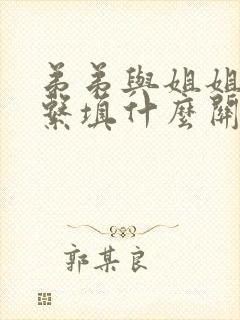 弟弟與姐姐
繫填什麼關
郭某良